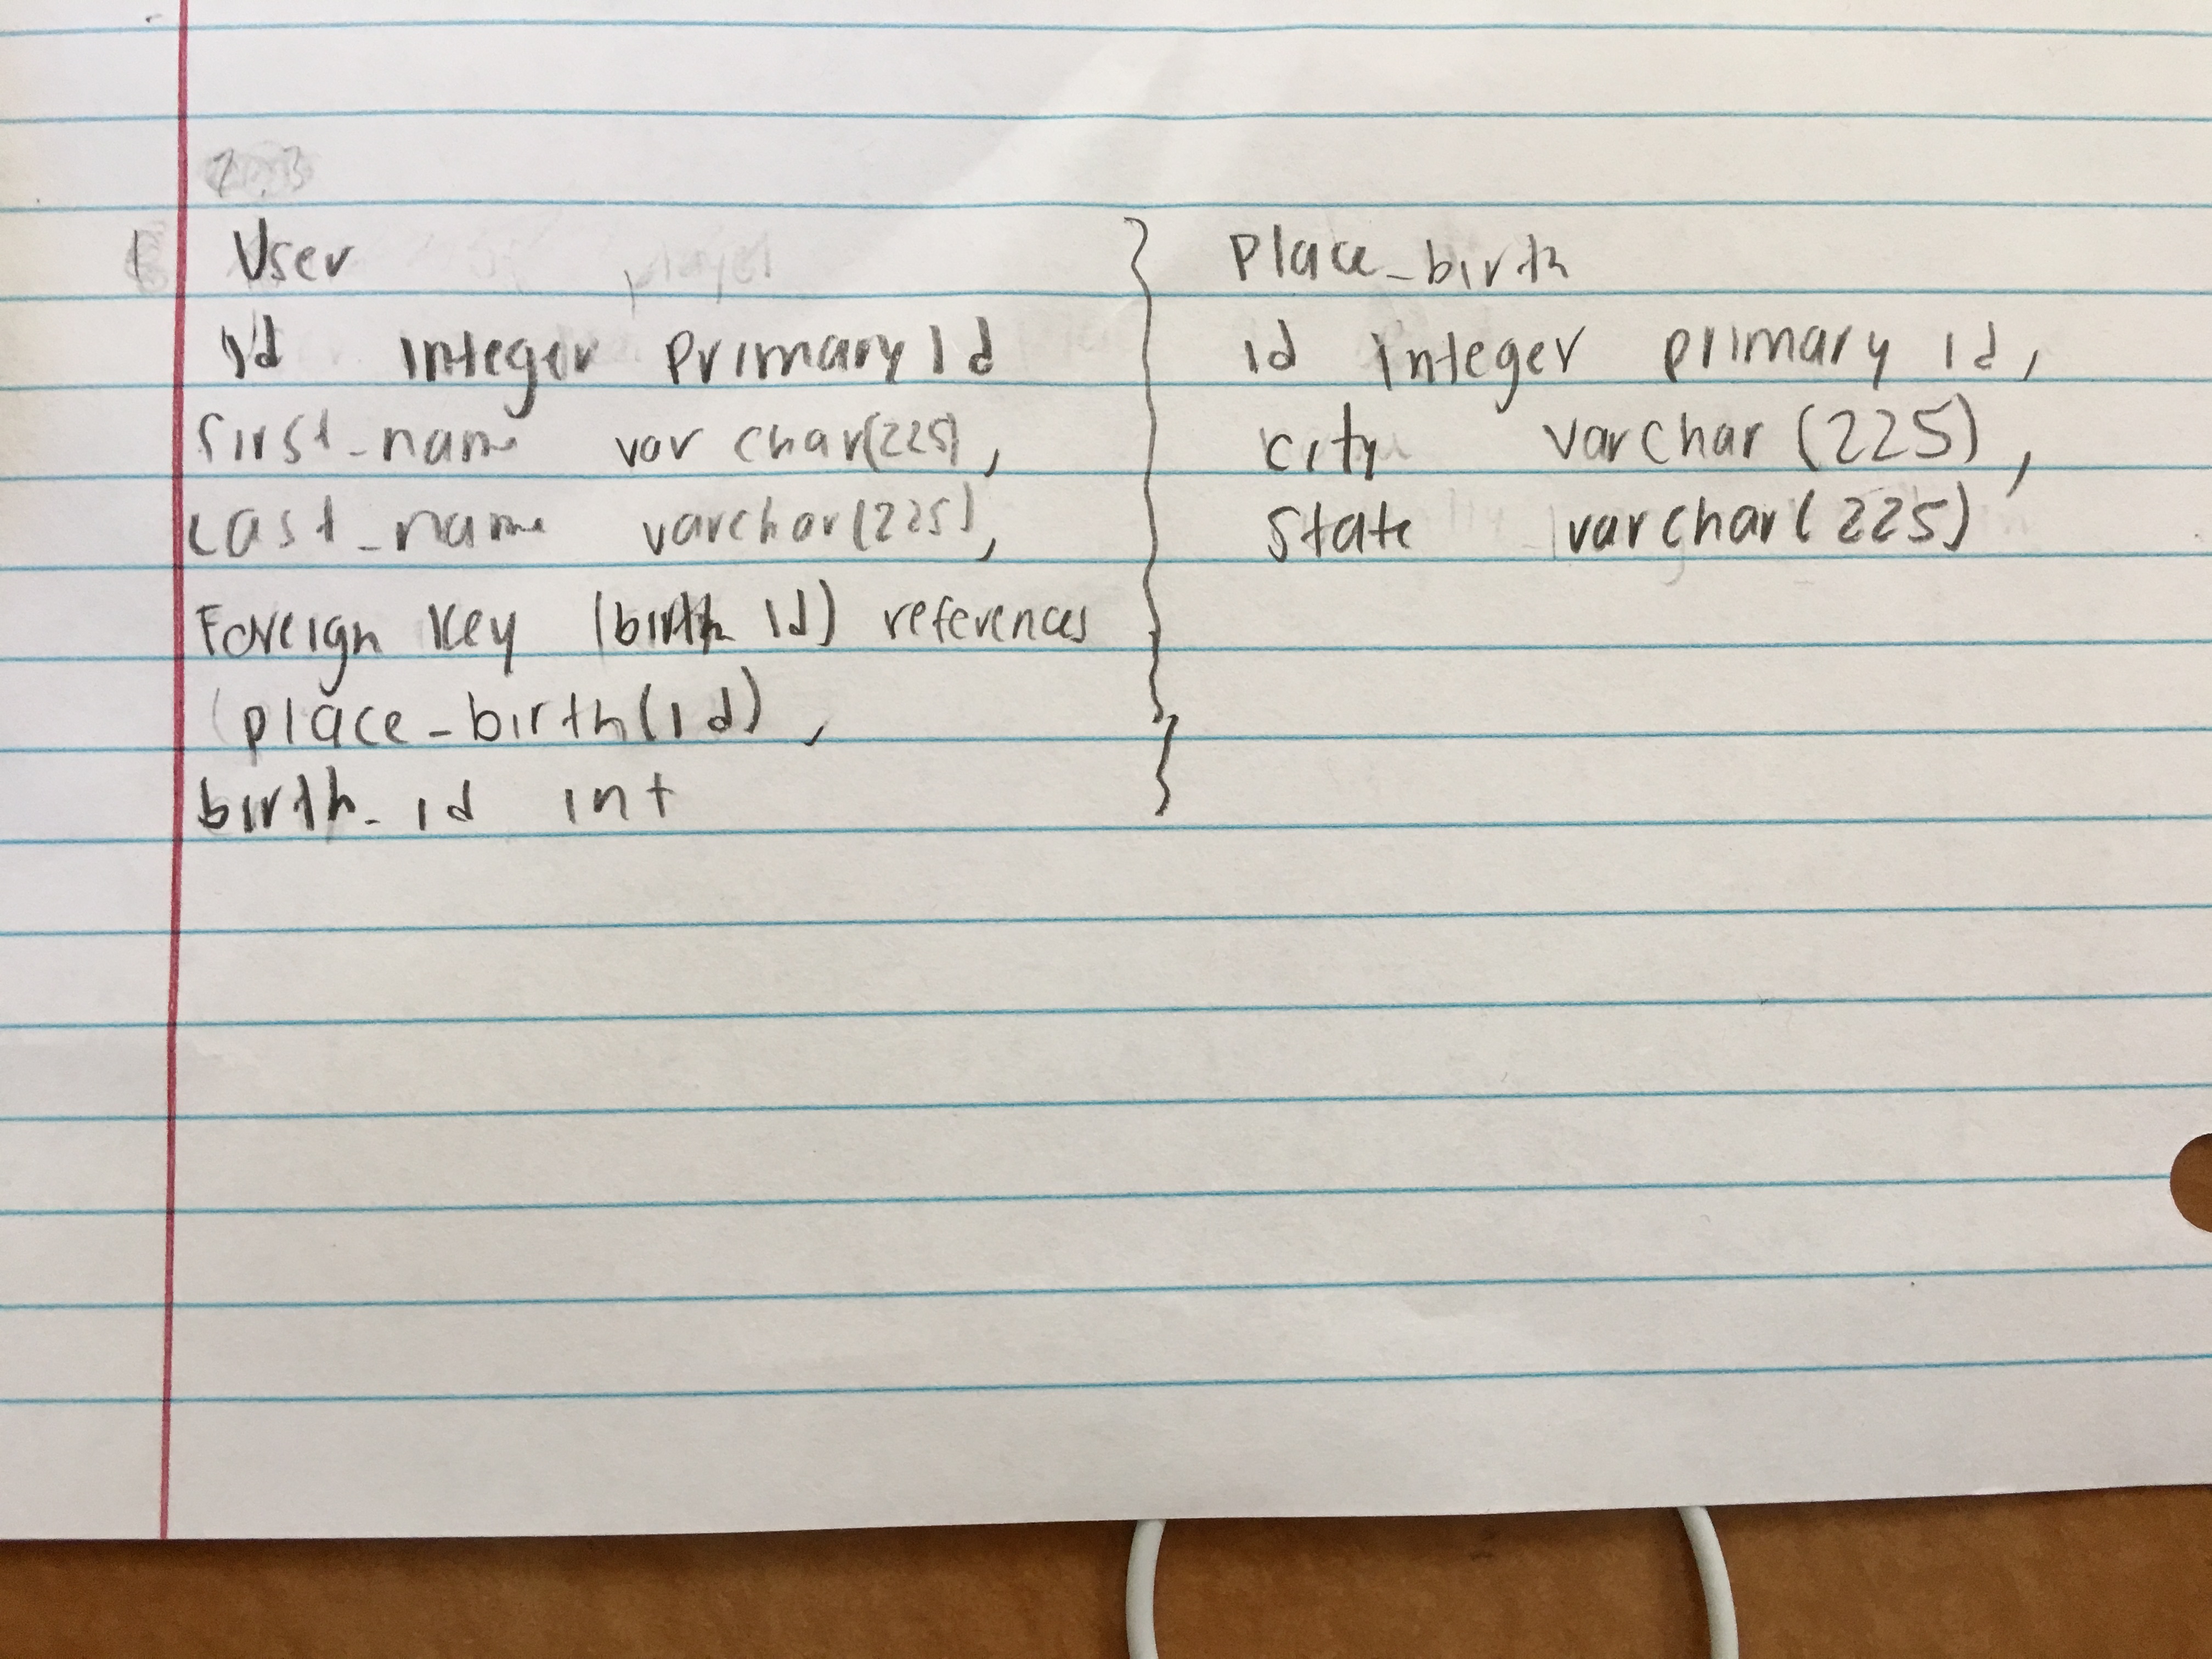 User
id Integer Primary Id
first_name varchar(225),
Last_name varchar(225),
Foreign Key (birth id) references
(place_birth(id),
birth_id int
Place_birth
id Integer primary id,
city varchar(225),
state varchar(225),